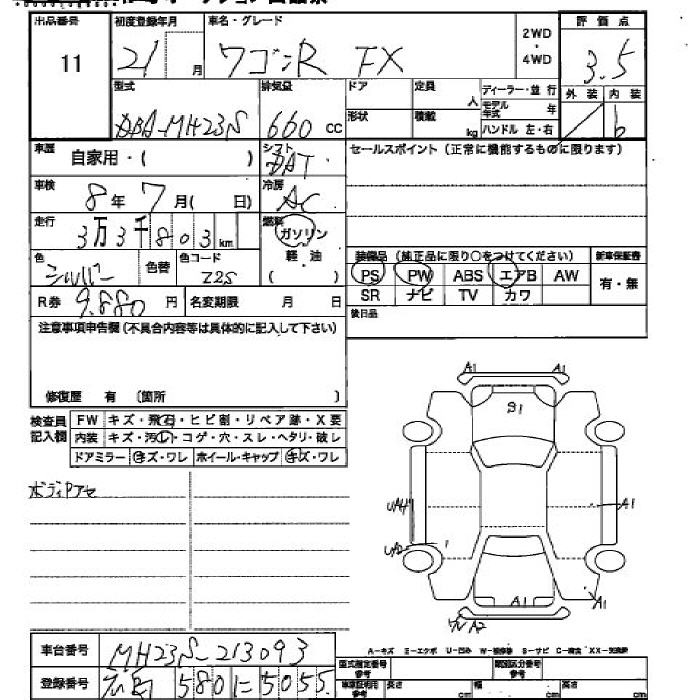 出品番号 初度登録年月 車名・グレード 2WD・4WD 評価点
11 21 月 ワゴンR FX 3.5
型式 排気量 ドア 定員 人 ディーラー・並行 外装 内装
DBA-MH23S 660 cc 形状 積載 kg モデル年式 年 b
ハンドル 左・右
車歴 自家用・( ) シフト セールスポイント(正常に機能するものに限ります)
DAT
車検 8年 7月( 日) 冷房 AC
走行 3万3千803km 燃料 ガソリン
軽油
( )
色 シルバー 色替 色コード Z2S
装備品(純正品に限り○をつけてください) 新車保証書
PS PW ABS エアB AW 有・無
SR ナビ TV カワ
R券 9.880 円 名変期限 月 日
後日品
注意事項申告欄(不具合内容等は具体的に記入して下さい)
修復歴 有 〔箇所 〕
検査員記入欄 FW キズ・飛石・ヒビ割・リペア跡・X要
内装 キズ・汚れ・コゲ・穴・スレ・ヘタリ・破レ
ドアミラー キズ・ワレ ホイール・キャップ キズ・ワレ
A1 A1
S1
ボディPアセ
A1
A1
A1
A2
A-キズ E-エクボ U-凹み W-補修跡 S-サビ C-腐食 XX-交換済
車台番号 MH23S-213093
登録番号 広島 580 に 5055
型式指定番号 参考 類別区分番号 参考
車庫証明用 参考 長さ cm 幅 cm 高さ cm